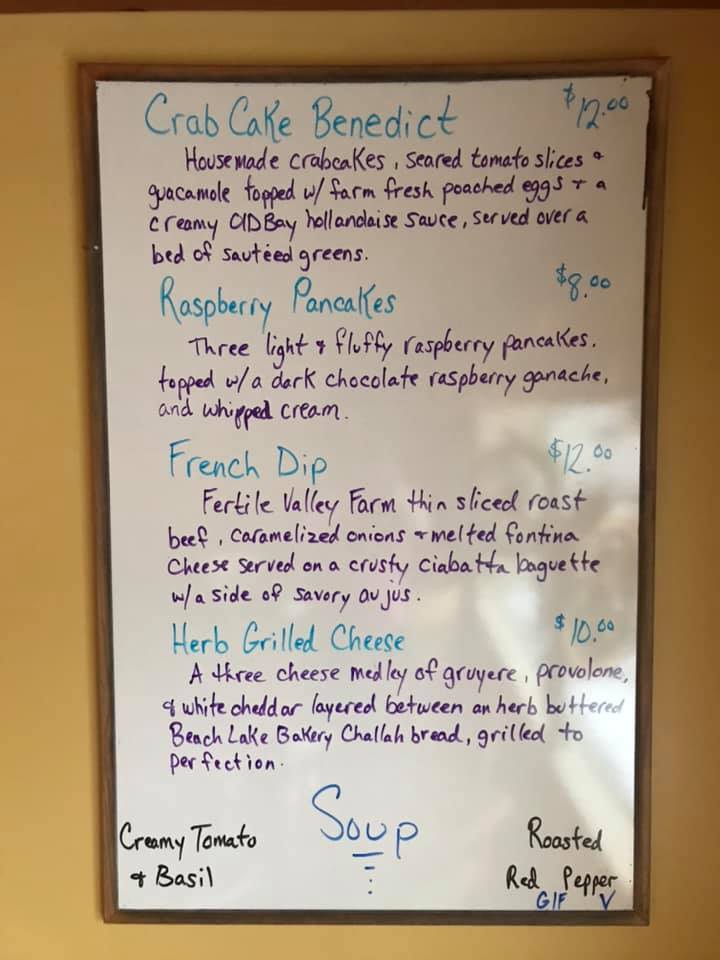 Crab Cake Benedict $12.00
Housemade crabcakes, seared tomato slices &
guacamole topped w/ farm fresh poached eggs + a
creamy OLD Bay hollandaise sauce, served over a
bed of sautéed greens.
Raspberry Pancakes $8.00
Three light & fluffy raspberry pancakes.
topped w/ a dark chocolate raspberry ganache,
and whipped cream.
French Dip $12.00
Fertile Valley Farm thin sliced roast
beef, caramelized onions & melted fontina
cheese served on a crusty ciabatta baguette
w/ a side of savory au jus.
Herb Grilled Cheese $10.00
A three cheese medley of gruyere, provolone,
& white cheddar layered between an herb buttered
Beach Lake Bakery Challah bread, grilled to
perfection.
Soup
Creamy Tomato
& Basil
Roasted
Red Pepper
GIF V